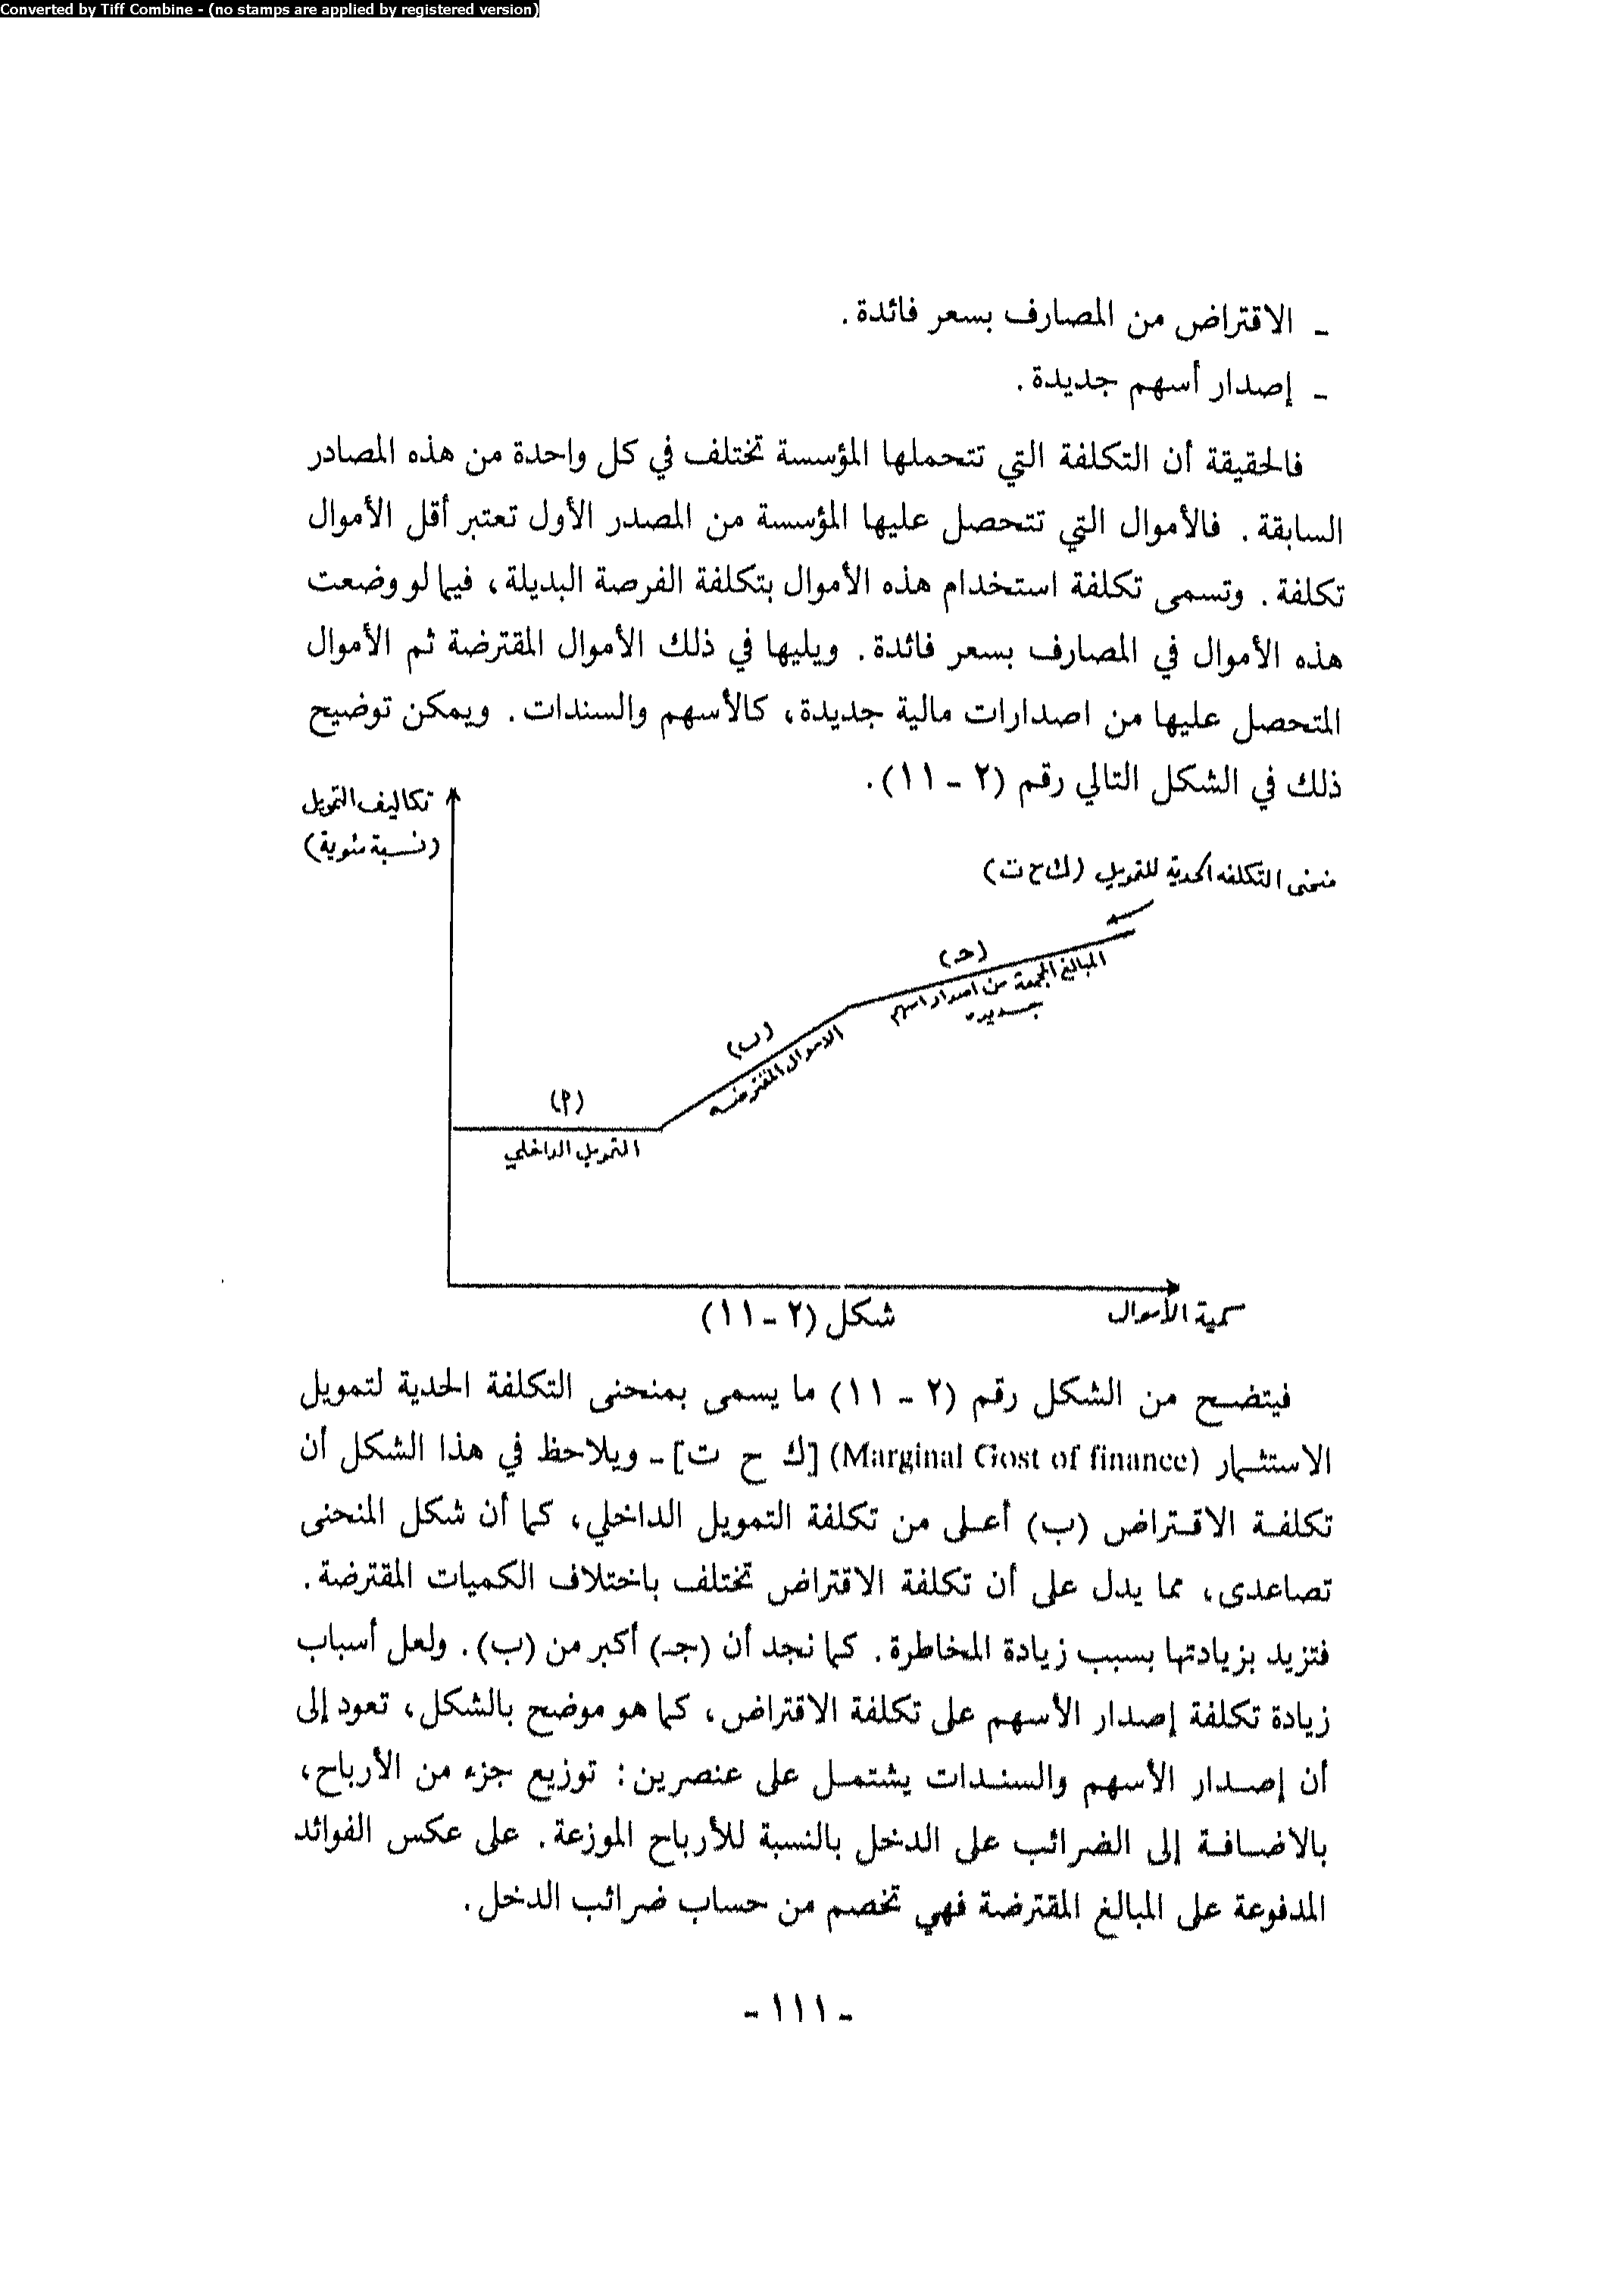 Converted by Tiff Combine - (no stamps are applied by registered version)
- الاقتراض من المصارف بسعر فائدة.
- إصدار أسهم جديدة.
فالحقيقة أن التكلفة التي تتحملها المؤسسة تختلف في كل واحدة من هذه المصادر
السابقة. فالأموال التي تتحصل عليها المؤسسة من المصدر الأول تعتبر أقل الأموال
تكلفة. وتسمى تكلفة استخدام هذه الأموال بتكلفة الفرصة البديلة، فيما لو وضعت
هذه الأموال في المصارف بسعر فائدة. ويليها في ذلك الأموال المقترضة ثم الأموال
المتحصل عليها من اصدارات مالية جديدة، كالأسهم والسندات. ويمكن توضيح
ذلك في الشكل التالي رقم (٢ - ١١).
تكاليف التمويل
(نسبة مئوية)
منحنى التكلفه الحدية للتمويل (ك ح ت)
(حـ)
المبالغ المجمعة من اصدار اسهم
جديده
(ب)
الاموال المقترضه
(أ)
التمويل الداخلي
كمية الأموال
شكل (٢ - ١١)
فيتضح من الشكل رقم (٢ - ١١) ما يسمى بمنحنى التكلفة الحدية لتمويل
الاستثمار (Marginal Gost of finance) [ك ح ت] - ويلاحظ في هذا الشكل أن
تكلفة الاقتراض (ب) أعلى من تكلفة التمويل الداخلي، كما أن شكل المنحنى
تصاعدى، مما يدل على أن تكلفة الاقتراض تختلف باختلاف الكميات المقترضة.
فتزيد بزيادتها بسبب زيادة المخاطرة. كما نجد أن (جـ) أكبر من (ب). ولعل أسباب
زيادة تكلفة إصدار الأسهم على تكلفة الاقتراض، كما هو موضح بالشكل، تعود إلى
أن إصدار الأسهم والسندات يشتمل على عنصرين: توزيع جزء من الأرباح،
بالاضافة إلى الضرائب على الدخل بالنسبة للأرباح الموزعة. على عكس الفوائد
المدفوعة على المبالغ المقترضة فهي تخصم من حساب ضرائب الدخل.
- ١١١ -